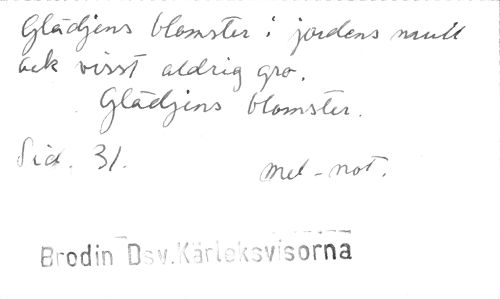 Glädjens blomster i jordens mull
ack visst aldrig gro.
Glädjens blomster.
Sid. 31.
mel-not.
Brodin Dsv.Kärleksvisorna